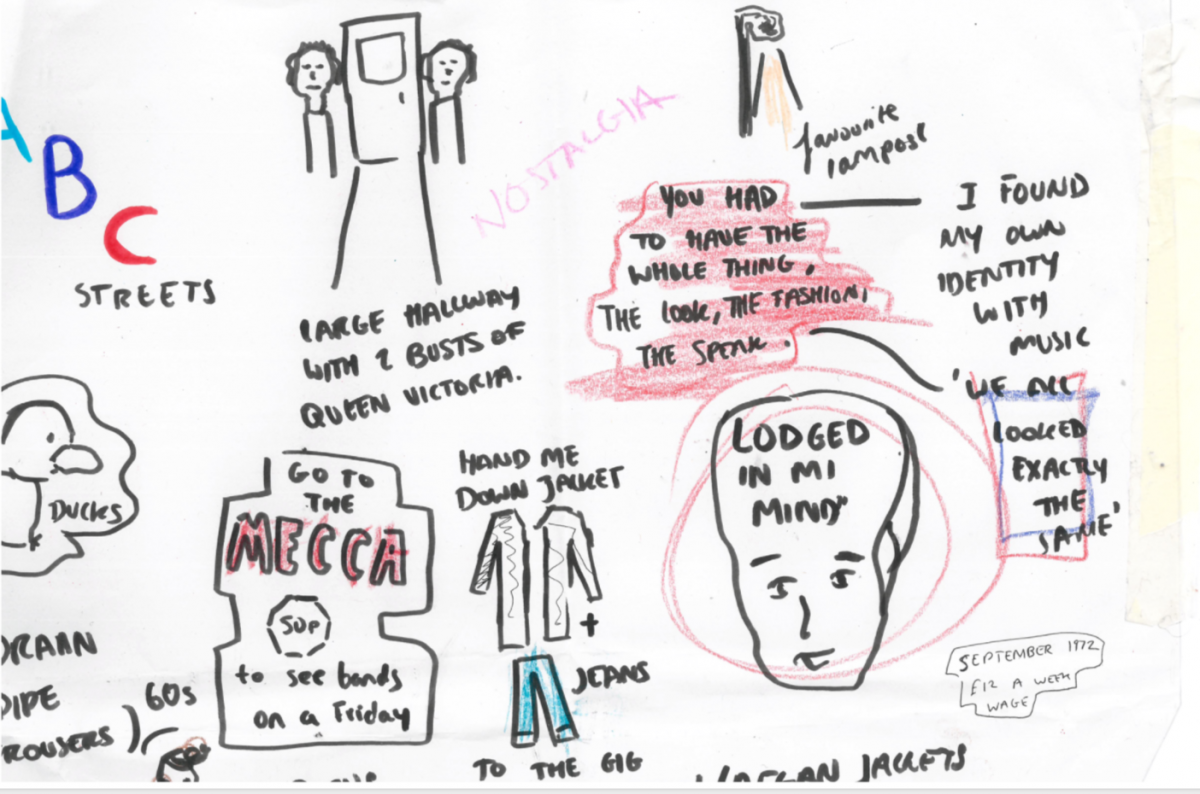 A
B
C
STREETS
LARGE HALLWAY
WITH 2 BUSTS OF
QUEEN VICTORIA.
NOSTALGIA
favourite
lampost
YOU HAD
TO HAVE THE
WHOLE THING,
THE LOOK, THE FASHION,
THE SPEAK.
I FOUND
MY OWN
IDENTITY
WITH
MUSIC
'WE ALL
LOOKED
EXACTLY
THE
SAME'
DUCKS
GO TO
THE
MECCA
50p
to see bands
on a Friday
HAND ME
DOWN JACKET
+
JEANS
TO THE GIG
LODGED
IN MI
MIND"
SEPTEMBER 1972
£12 A WEEK
WAGE
DRAIN
PIPE
TROUSERS)
60s
JACKETS